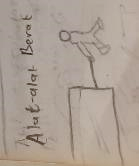 Alat-alat Berat